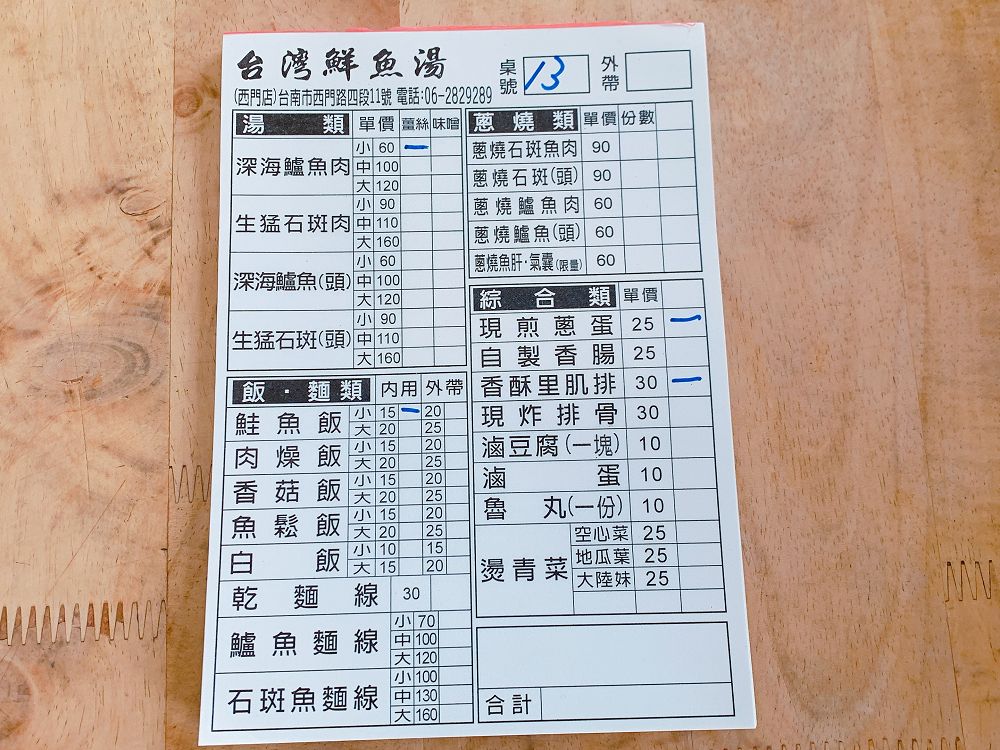 台灣鮮魚湯
桌號 13 外帶
(西門店)台南市西門路四段11號 電話:06-2829289
湯類 單價 薑絲 味噌
深海鱸魚肉 小 60 一
中 100
大 120
生猛石斑肉 小 90
中 110
大 160
深海鱸魚(頭) 小 60
中 100
大 120
生猛石斑(頭) 小 90
中 110
大 160
飯·麵類 內用 外帶
鮭魚飯 小 15 一 20
大 20 25
肉燥飯 小 15 20
大 20 25
香菇飯 小 15 20
大 20 25
魚鬆飯 小 15 20
大 20 25
白飯 小 10 15
大 15 20
乾麵線 30
鱸魚麵線 小 70
中 100
大 120
石斑魚麵線 小 100
中 130
大 160
蔥燒類 單價 份數
蔥燒石斑魚肉 90
蔥燒石斑(頭) 90
蔥燒鱸魚肉 60
蔥燒鱸魚(頭) 60
蔥燒魚肝·氣囊(限量) 60
綜合類 單價
現煎蔥蛋 25 一
自製香腸 25
香酥里肌排 30 一
現炸排骨 30
滷豆腐(一塊) 10
滷蛋 10
魯丸(一份) 10
燙青菜 空心菜 25
地瓜葉 25
大陸妹 25
合計